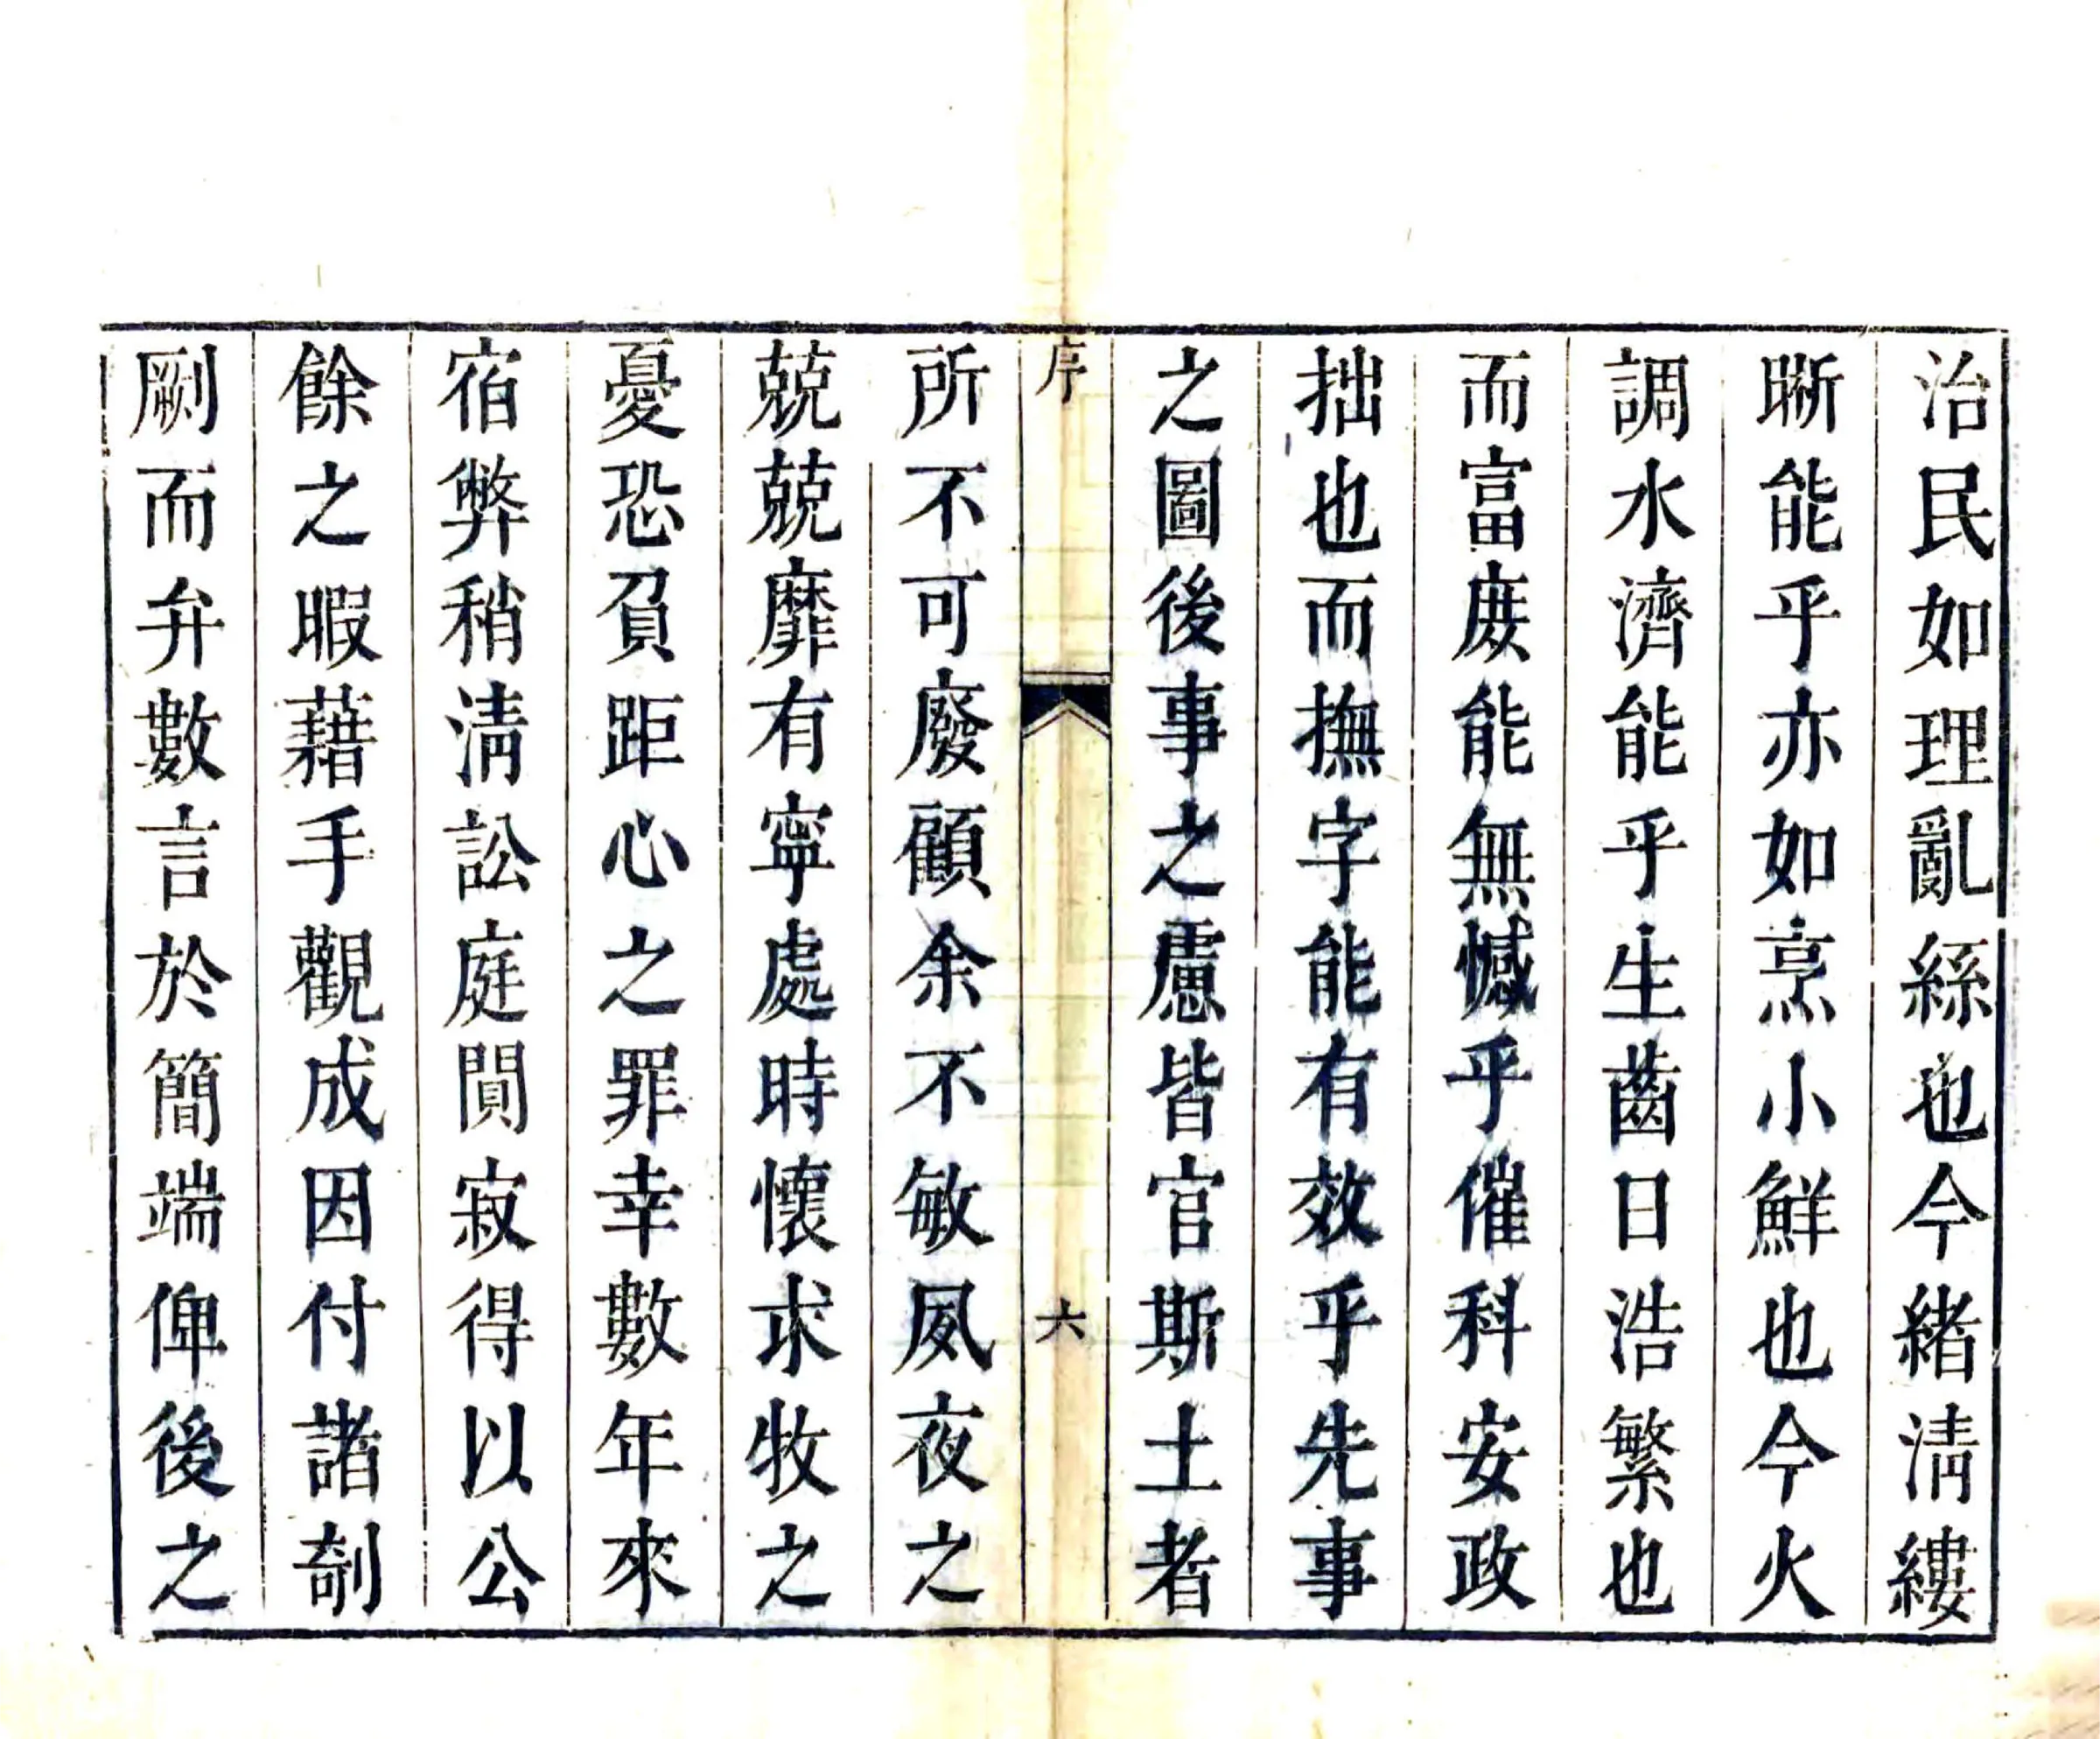 治民如理亂絲也今緒淸縷
晰能乎亦如烹小鮮也今火
調水濟能乎生齒日浩繁也
而富庻能無憾乎催科安政
拙也而撫字能有效乎先事
之圖後事之慮皆官斯土者
序
六
所不可廢顧余不敏夙夜之
兢兢靡有寧處時懷求牧之
憂恐負距心之罪幸數年來
宿弊稍淸訟庭閴寂得以公
餘之暇藉手觀成因付諸剞
劂而弁數言於簡端俾後之